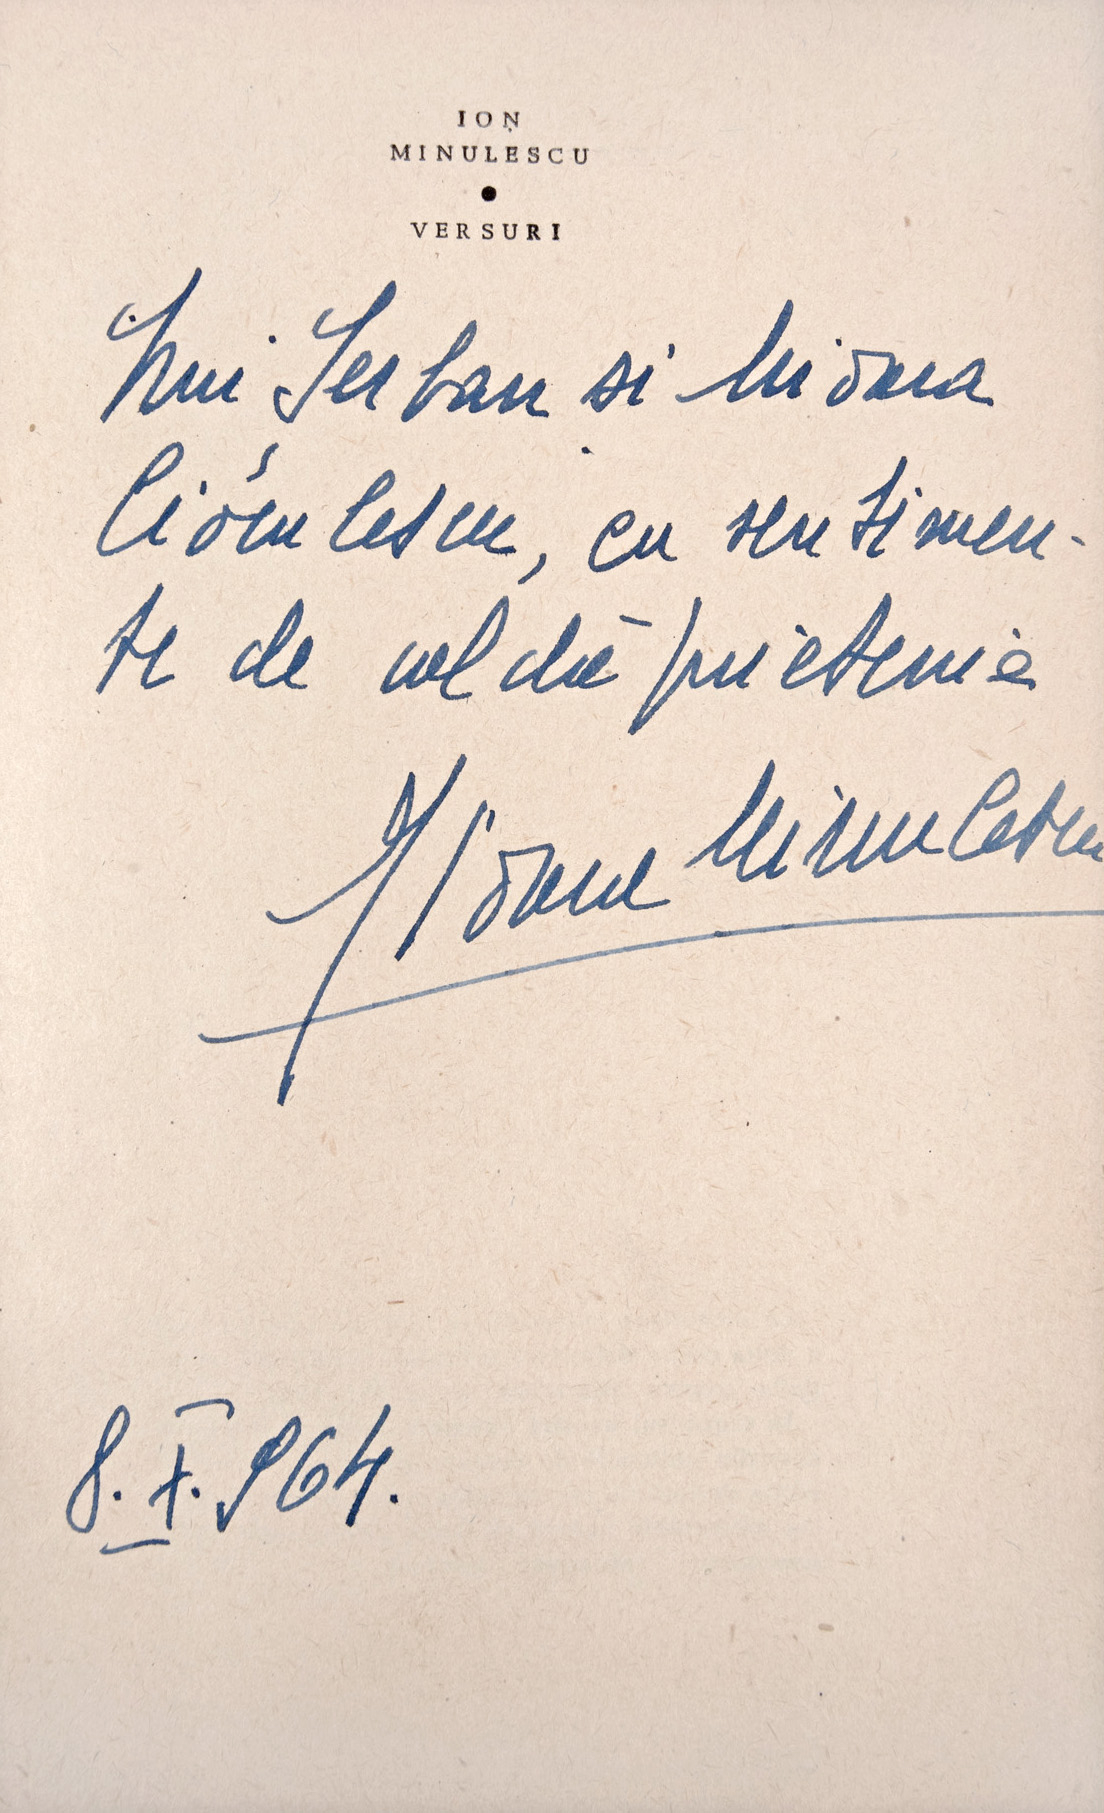 ION
MINULESCU
●
VERSURI
Lui Serban si Mioara
Cioculescu, cu sentimen-
te de caldă prietenie
Mioara Minulescu
8. X. 964.